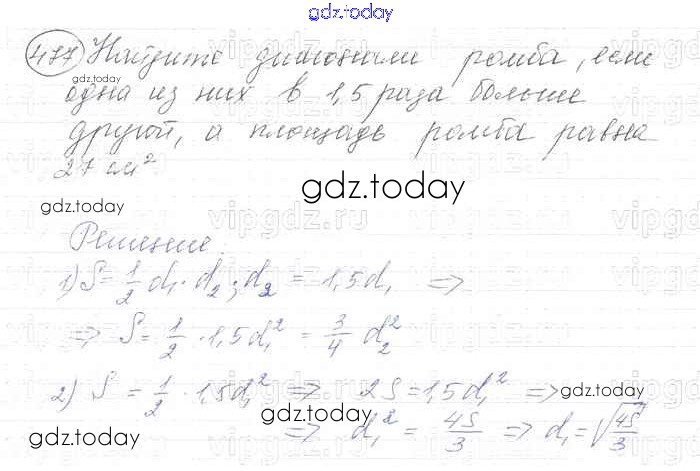 gdz.today
477 Найдите диагонали ромба, если
gdz.today
одна из них в 1,5 раза больше
другой, а площадь ромба равна
27 см²
gdz.today
gdz.today
vipgdz.ru
Решение.
1) S = 1/2 d₁ · d₂; d₂ = 1,5d₁ =>
=> S = 1/2 · 1,5d₁² = 3/4 d₂²
2) S = 1/2 · 1,5d₁² => 2S = 1,5d₁² =>
gdz.today
gdz.today
=> d₁² = 4S/3 => d₁ = √(4S/3)
gdz.today